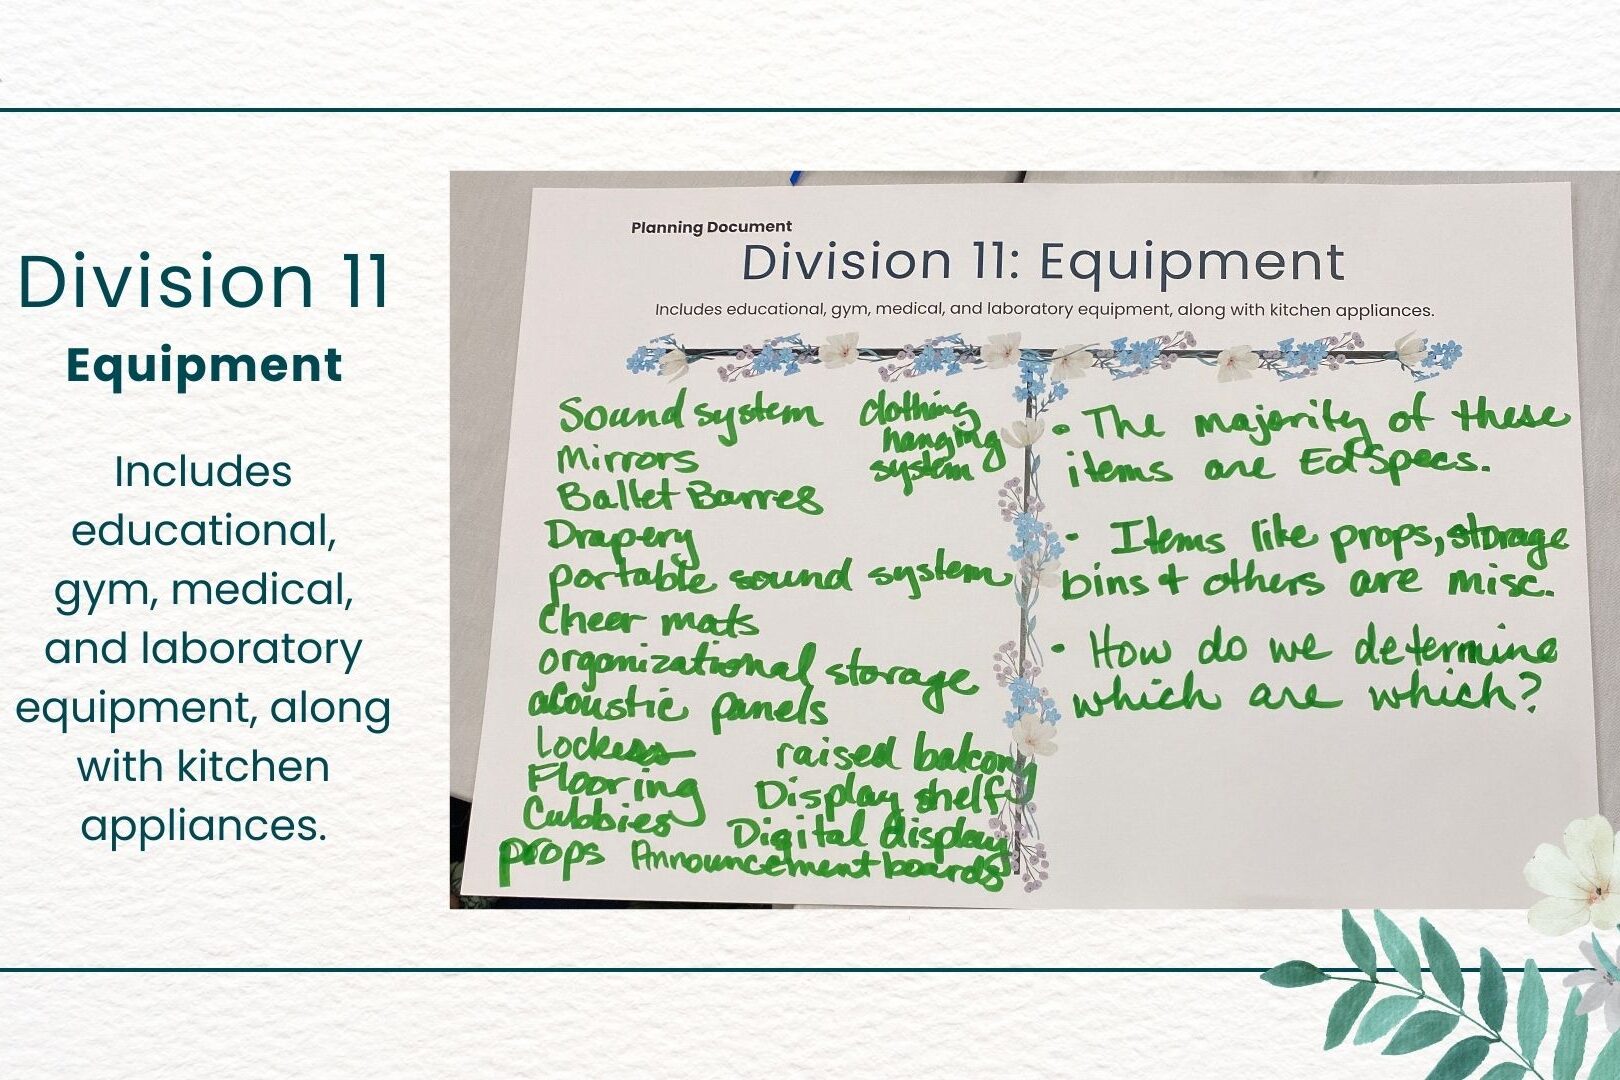 Division 11
Equipment
Includes
educational,
gym, medical,
and laboratory
equipment, along
with kitchen
appliances.
Planning Document
Division 11: Equipment
Includes educational, gym, medical, and laboratory equipment, along with kitchen appliances.
Sound system
clothing
hanging
system
Mirrors
Ballet Barres
Drapery
portable sound system
Cheer mats
organizational storage
acoustic panels
Flooring
Cubbies
props
raised balcony
Display shelf
Digital display
Announcement boards
• The majority of these
items are EdSpecs.
• Items like props, storage
bins + others are misc.
• How do we determine
which are which?